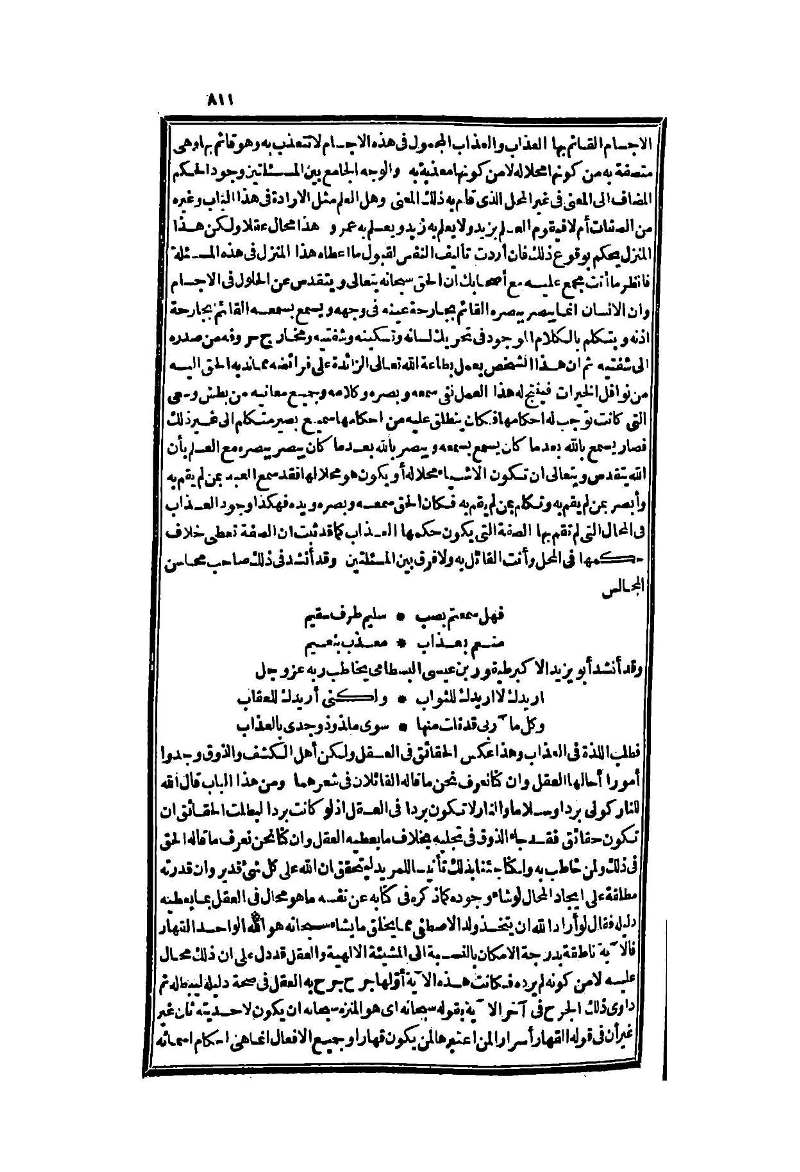 ٨١١
الاجسام القائم بها العذاب والعذاب المحمول فى هذه الاجسام لا تتعذب به وهو قائم بها وهى
متصفة به من كونها محلا له لا من كونها معذبة به والوجه الجامع بين المسئلتين وجود الحكم
المضاف الى المعنى فى غير المحل الذى قام به ذلك المعنى وهل العلم مثل الارادة فى هذا الباب وغيره
من الصفات أم لا فيقوم العلم بزيد ولا يعلم به زيد ويعلم به عمرو وهذا محال عقلا ولكن هذا
المنزل يحكم بوقوع ذلك فان أردت تأليف النفس لقبول ما اعطاه هذا المنزل فى هذه المسئلة
فانظر ما أنت مجمع عليه مع أصحابك ان الحق سبحانه يتعالى ويتقدس عن الحلول فى الاجسام
وان الانسان انما يبصر ببصره القائم بجارحة عينه فى وجهه ويسمع بسمعه القائم بجارحة
اذنه ويتكلم بالكلام الموجود فى تحريك لسانه وتسكينه وشفتيه ومخارج حروفه من صدره
الى شفتيه ثم ان هذا الشخص يعمل بطاعة الله تعالى الزائدة على فرائضه مما ندبه الحق اليه
من نوافل الخيرات فينتج له هذا العمل نفى سمعه وبصره وكلامه وجميع معانيه من بطش وسعى
التى كانت توجب له احكامها فكان ينطلق عليه من احكامها سميع بصير متكلم الى غير ذلك
فصار يسمع بالله بعد ما كان يسمع بسمعه ويبصر بالله بعد ما كان يبصر ببصره مع العلم بأن
الله يتقدس ويتعالى ان تكون الاشياء محلا له أو يكون هو محلا لها فقد سمع العبد بمن لم يقم به
وأبصر بمن لم يقم به وتكلم بمن لم يقم به فكان الحق سمعه وبصره ويده فهكذا وجود العذاب
فى المحال التى لم تقم بها الصفة التى يكون حكمها العذاب كما قد ثبت ان الصفة تعطى خلاف
حكمها فى المحل وأنت القائل به ولا فرق بين المسئلتين وقد أنشد فى ذلك صاحب محاسن
المجالس
فهل سمعتم بصب * سليم طرف سقيم
منعم بعذاب * معذب بنعيم
وقد أنشد أبو يزيد الاكبر طيفور بن عيسى البسطامى يخاطب ربه عز وجل
اريدك لا اريدك للثواب * ولكنى أريدك للعقاب
وكل مآربى قد نلت منها * سوى ملذوذ وجدى بالعذاب
فطلب اللذة فى العذاب وهذا عكس الحقائق فى العقل ولكن أهل الكشف والذوق وجدوا
أمورا أحالها العقل وان كنا نعرف نحن ما قاله القائلان فى شعرهما ومن هذا الباب قال الله
للنار كونى بردا وسلاما والنار لا تكون بردا فى العقل اذ لو كانت بردا لبطلت الحقائق ان
تكون حقائق فقد جاء الذوق فى تجليه بخلاف ما يعطيه العقل وان كنا نحن نعرف ما قاله الحق
فى ذلك ولمن خاطب به ولكنا جئنا بذلك تأنيسا للمريد ليتحقق ان الله على كل شئ قدير وان قدرته
مطلقة على ايجاد المحال لو شاء وجوده كما ذكره فى كتابه عن نفسه ما هو محال فى العقل بما يعطيه
دليله فقال لو أراد الله ان يتخذ ولدا لاصطفى مما يخلق ما يشاء سبحانه هو الله الواحد القهار
فالآية ناطقة بدرجة الامكان بالنسبة الى المشيئة الالهية والعقل قد دل على ان ذلك محال
عليه لا من كونه لم يرده فكانت هذه الآية أولها جرح جرح به العقل فى صحة دليله ليبطله ثم
داوى ذلك الجرح فى آخر الآية بقوله سبحانه اى هو المنزه سبحانه ان يكون لاحديته ثان غير
غير أن فى قوله القهار أسرارا لمن اعتبرها لمن يكون قهارا وجميع الافعال انما هى احكام اسمائه